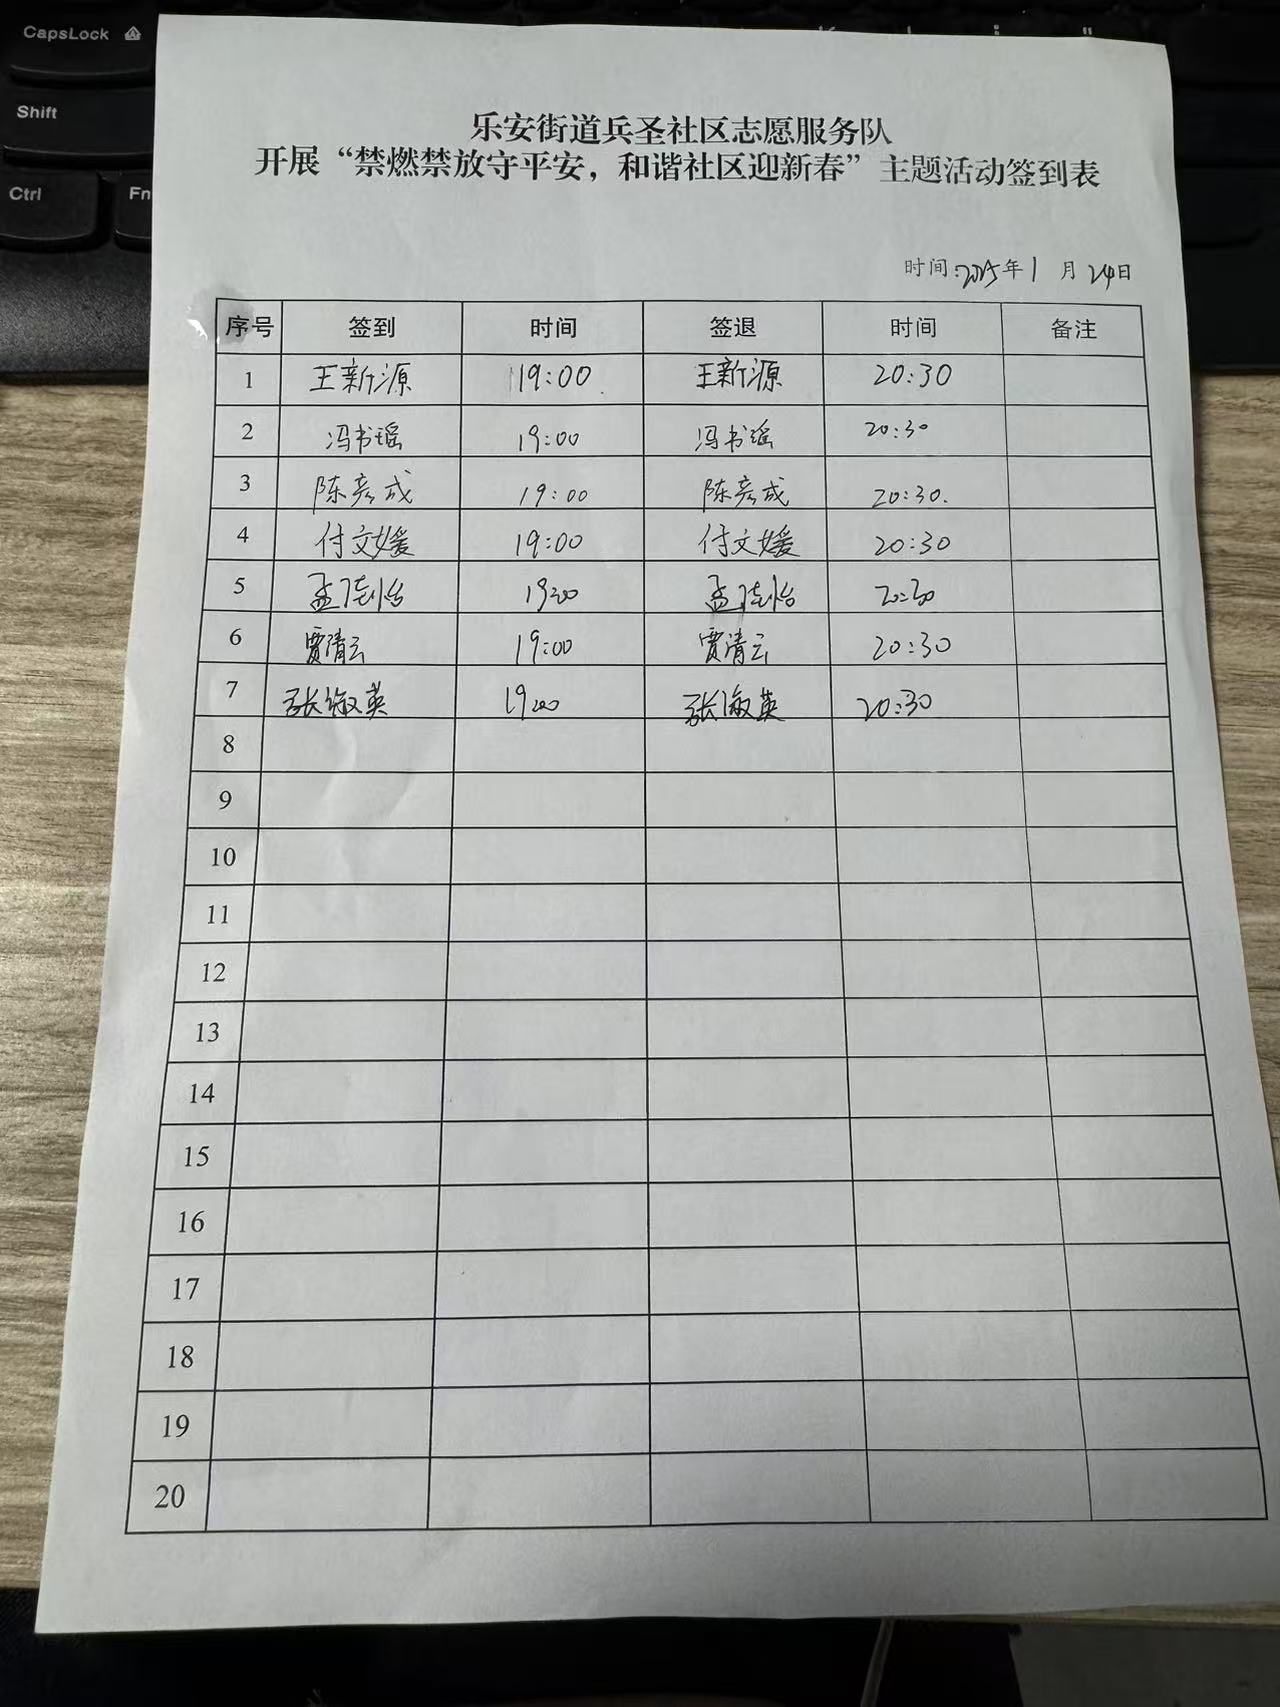 CapsLock
Shift
Ctrl
Fn
乐安街道兵圣社区志愿服务队
开展“禁燃禁放守平安，和谐社区迎新春”主题活动签到表
时间:2025年1月24日
序号 签到 时间 签退 时间 备注
1 王新源 19:00 王新源 20:30
2 冯书瑶 19:00 冯书瑶 20:30
3 陈彦成 19:00 陈彦成 20:30.
4 付文媛 19:00 付文媛 20:30
5 孟佳怡 19:00 孟佳怡 20:30
6 贾清云 19:00 贾清云 20:30
7 张淑英 19:00 张淑英 20:30
8
9
10
11
12
13
14
15
16
17
18
19
20